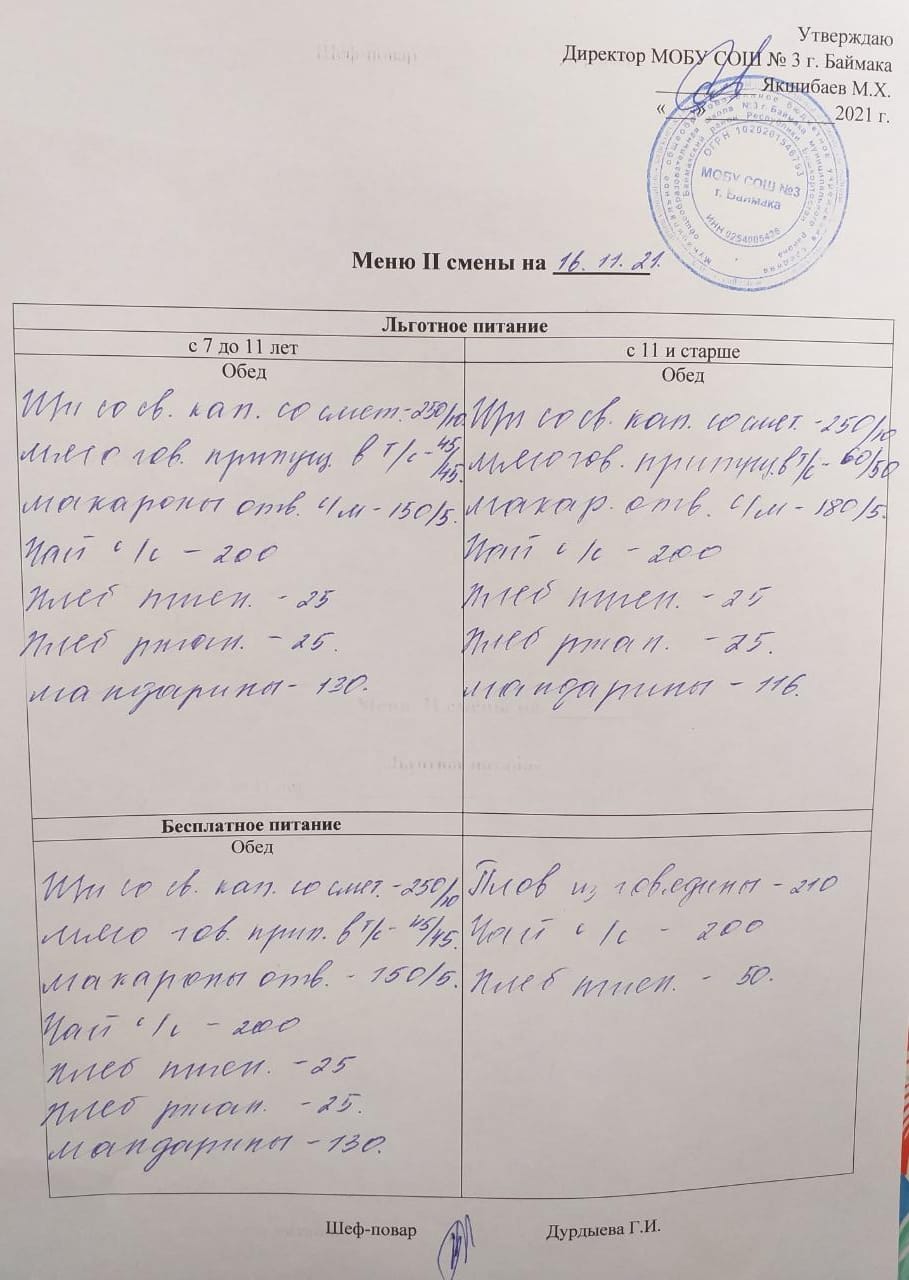 Утверждаю
Директор МОБУ СОШ № 3 г. Баймака
Якшибаев М.Х.
« » 2021 г.
ОГРН 1020201546753
МОБУ СОШ №3
г. Баймака
ИНН 0254005426
Меню II смены на 16.11.21.
Льготное питание
с 7 до 11 лет
Обед
Щи со св. кап. со смет. - 250/10
мясо гов. припущ. в т/с - 45/45.
макароны отв. с/м - 150/5.
Чай с/с - 200
Хлеб пшен. - 25
Хлеб ржан. - 25.
мандарины - 130.
с 11 и старше
Обед
Щи со св. кап. со смет. - 250/10
мясо гов. припущ. в т/с - 60/50
макар. отв. с/м - 180/5.
Чай с/с - 200
Хлеб пшен. - 25
Хлеб ржан. - 25.
мандарины - 116.
Бесплатное питание
Обед
Щи со св. кап. со смет. - 250/10
мясо гов. прип. в т/с - 45/45.
макароны отв. - 150/5.
Чай с/с - 200
Хлеб пшен. - 25
Хлеб ржан. - 25.
мандарины - 130.
Плов из говядины - 210
Чай с/с - 200
Хлеб пшен. - 50.
Шеф-повар Дурдыева Г.И.